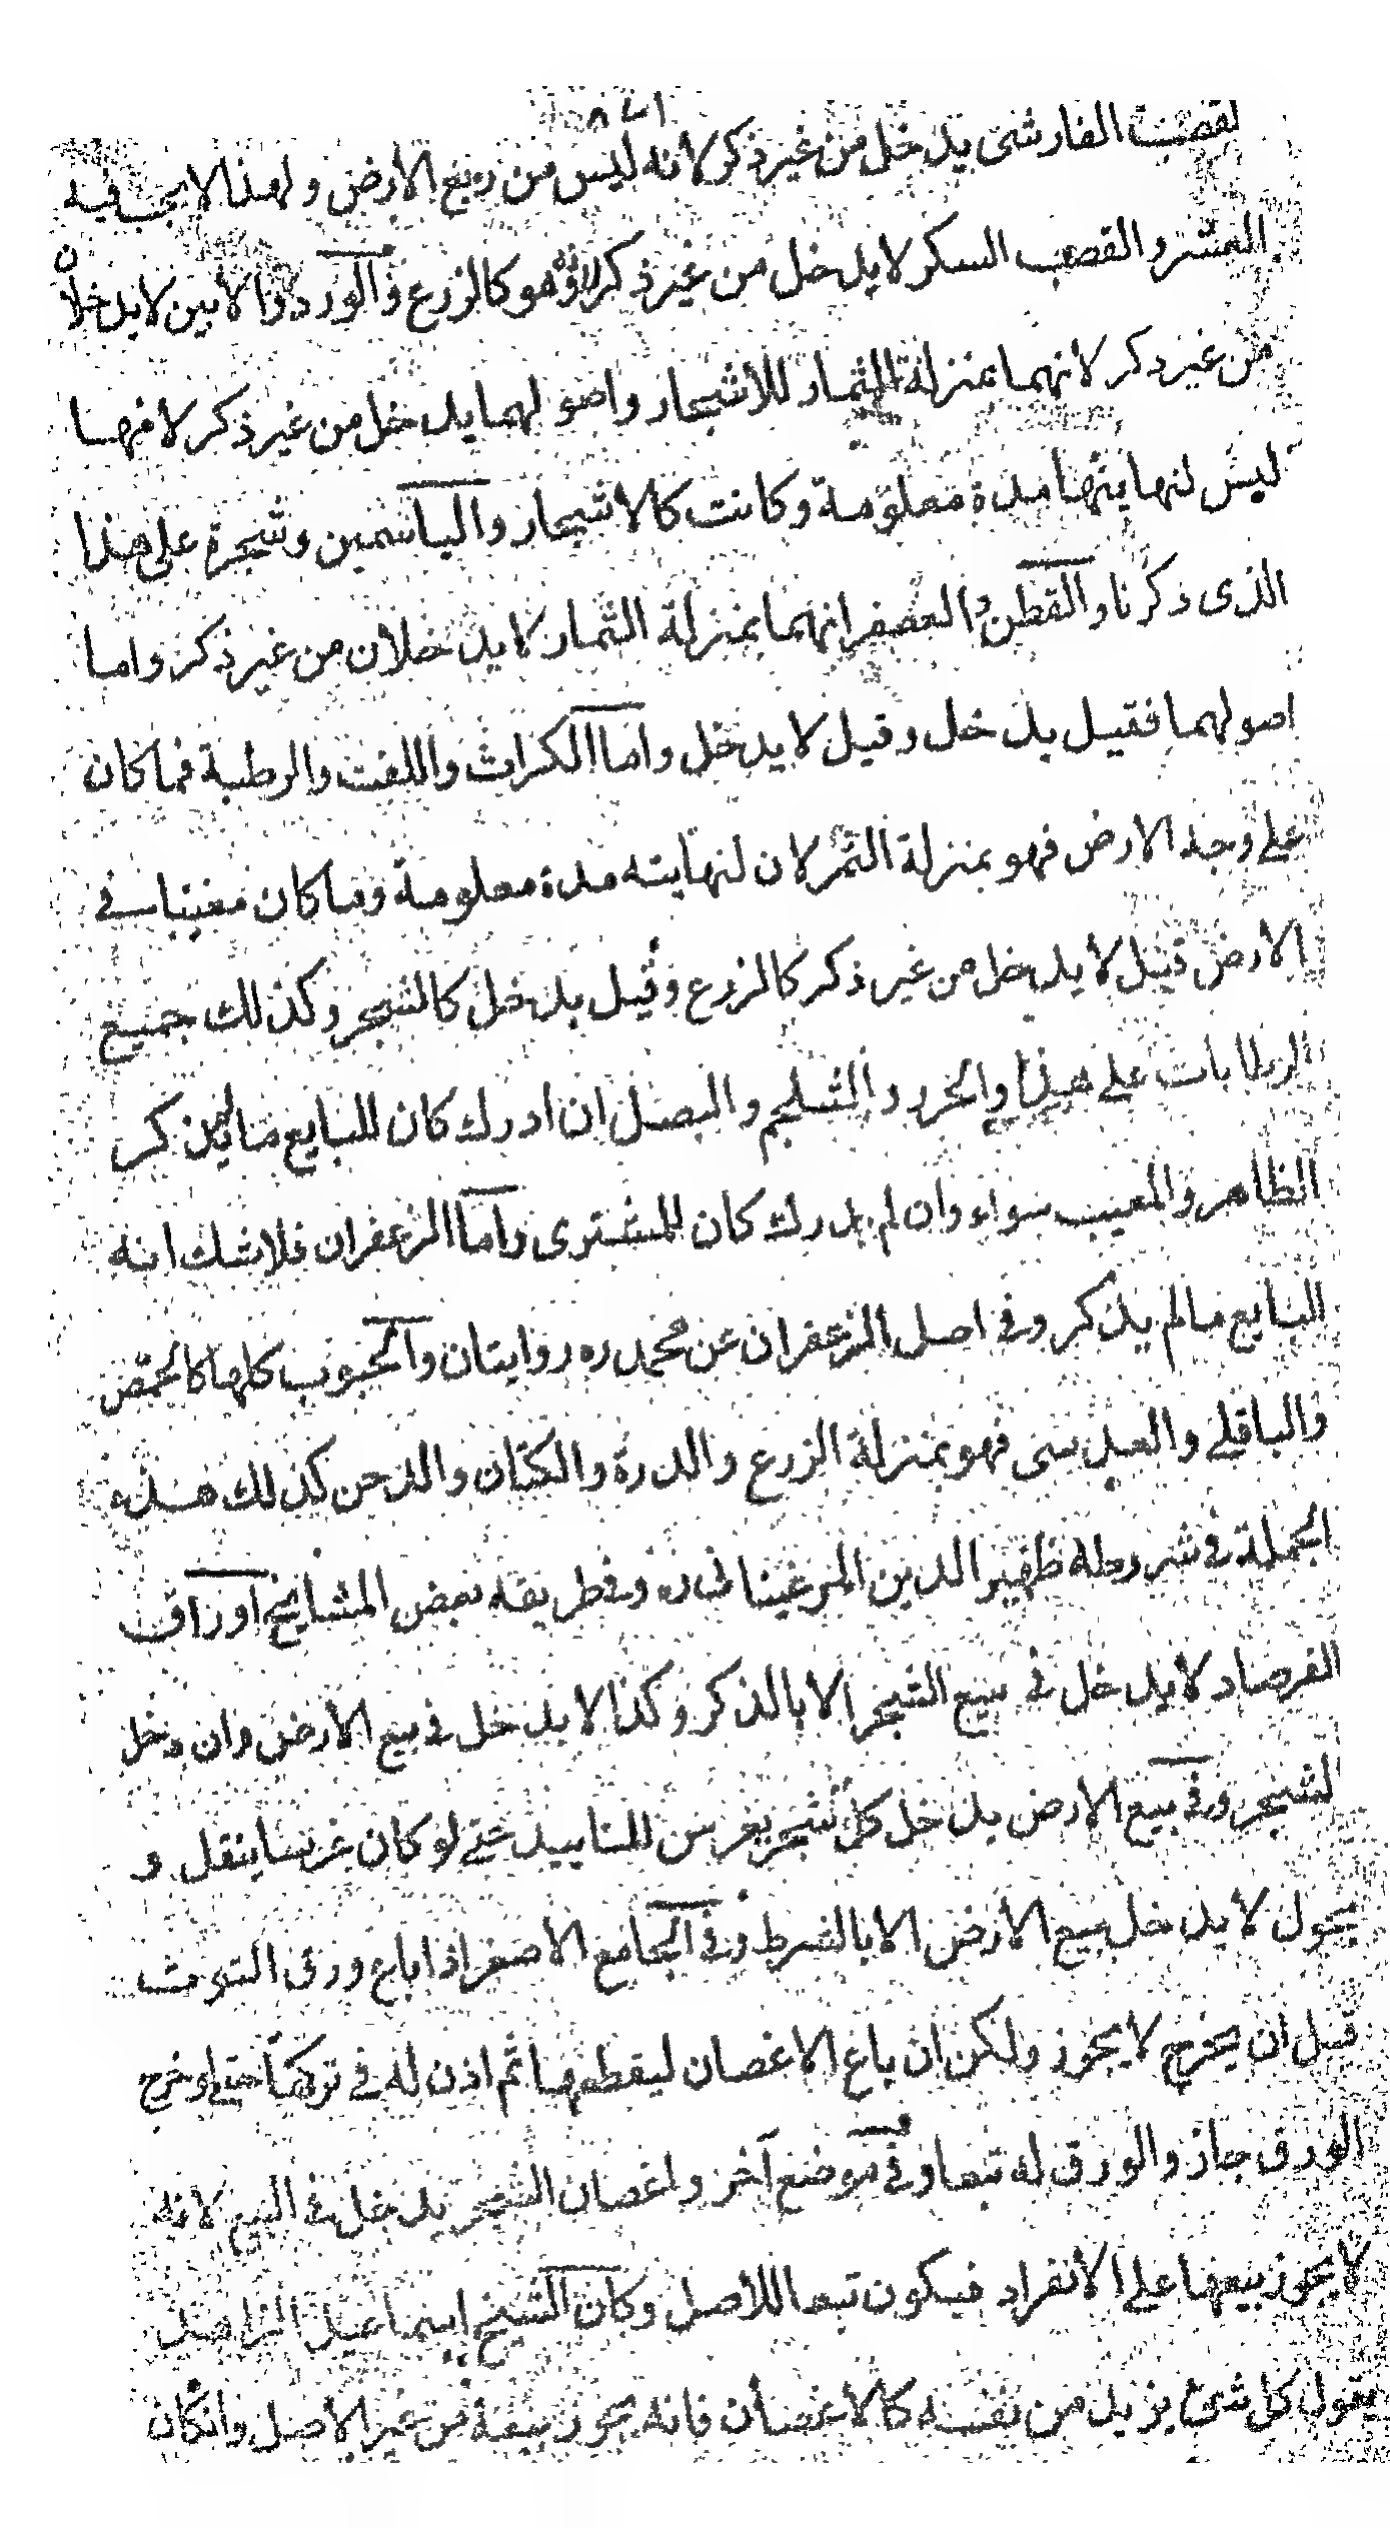 لقصب الفارسى يدخل من غير ذكر لانه ليس من ريع الارض ولهذا لا يجب فيه
العشر والقصب السكر لا يدخل من غير ذكر وهو كالزرع والورد والاس لا يدخلان
من غير ذكر لانهما بمنزلة الثمار للاشجار واصولهما يدخل من غير ذكر لانها
ليس لنهايتها مدة معلومة وكانت كالاشجار والياسمين وشجرة على هذا
الذى ذكرنا والقطن والعصفر انهما بمنزلة الثمار لا يدخلان من غير ذكر واما
اصولهما فقيل يدخل وقيل لا يدخل واما الكراث واللفت والرطبة فما كان
على وجه الارض فهو بمنزلة الثمر لان لنهايته مدة معلومة وما كان مغيبا في
الارض قيل لا يدخل من غير ذكر كالزرع وقيل يدخل كالشجر وكذلك جميع
الرطابات على هذا والجزر والشلجم والبصل ان ادرك كان للبايع ما لم يذكر
الظاهر والمغيب سواء وان لم يدرك كان للمشترى واما الزعفران فلا شك انه
البايع ما لم يذكر وفى اصل الزعفران عن محمد ره روايتان والحبوب كلها كالحمص
والباقلى والعدسى فهو بمنزلة الزرع والدرة والكتان والدخن كذلك هذه
الجملة فى شروطه ظهير الدين المرغينانى ره وفى طريقه بعض المشايخ اوراق
الفرصاد لا يدخل فى بيع الشجر الا بالذكر وكذا لا يدخل فى بيع الارض وان دخل
لشجر وفى بيع الارض يدخل كل شجر يغرس للتابيد حتى لو كان غرسا ينقل و
يحول لا يدخل بيع الارض الا بالشرط وفى الجامع الاصغر اذا باع ورق التوث
قبل ان يخرج لا يجوز ولكن ان باع الاغصان ليقطعها ثم اذن له فى تركها حتى لو خرج
الورق جاز والورق له تبعا وفى موضع آخر واغصان الشجر يدخل فى البيع لانه
لا يجوز بيعها على الانفراد فيكون تبعا للاصل وكان الشيخ اسماعيل الزاهد
يقول كل شئ يزيد من نفسه كالاغصان فانه يجوز بيعه من غير الاصل وان كان